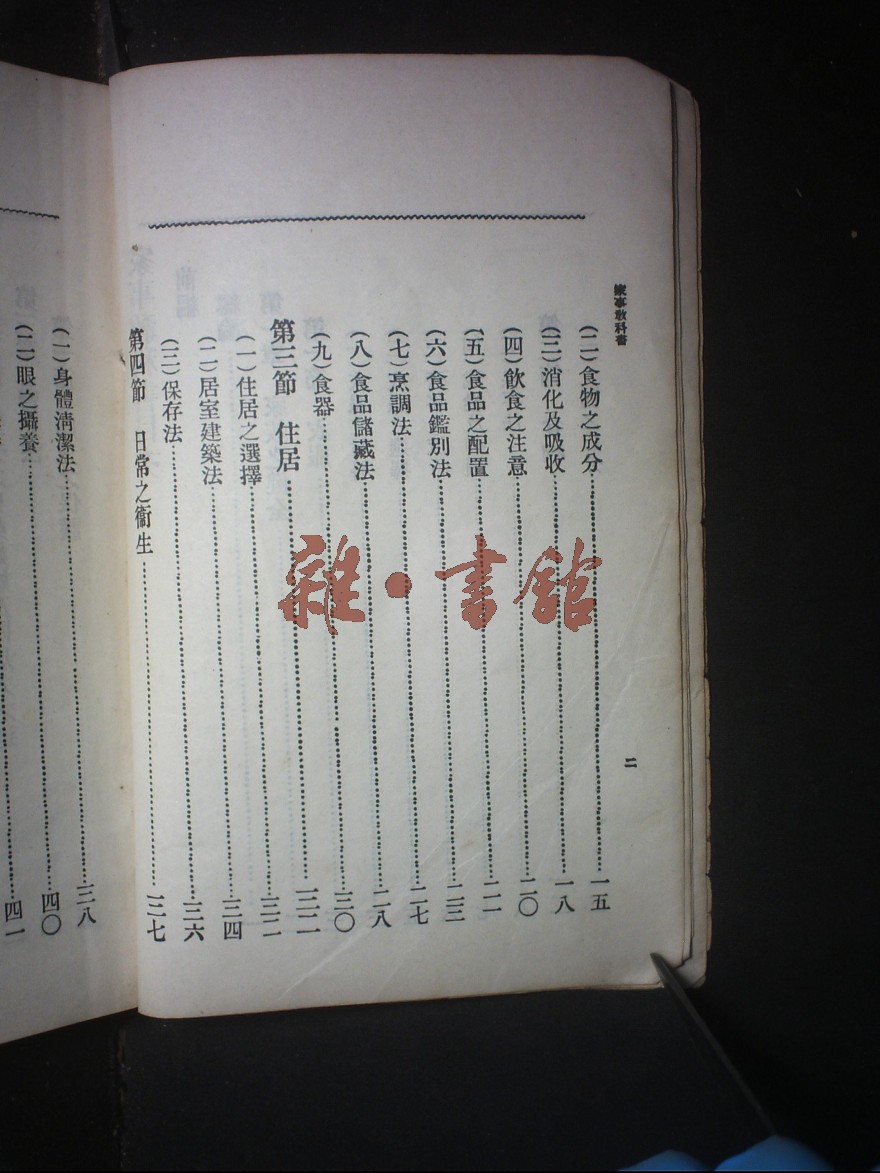 家事教科書
二
(二)食物之成分……一五
(三)消化及吸收……一八
(四)飲食之注意……二〇
(五)食品之配置……二一
(六)食品鑑別法……二三
(七)烹調法……二七
(八)食品儲藏法……二八
(九)食器……三〇
第三節 住居……三二
(一)住居之選擇……三二
(二)居室建築法……三四
(三)保存法……三六
第四節 日常之衞生……三七
(一)身體淸潔法……三八
(二)眼之攝養……四〇
四一
雜·書館